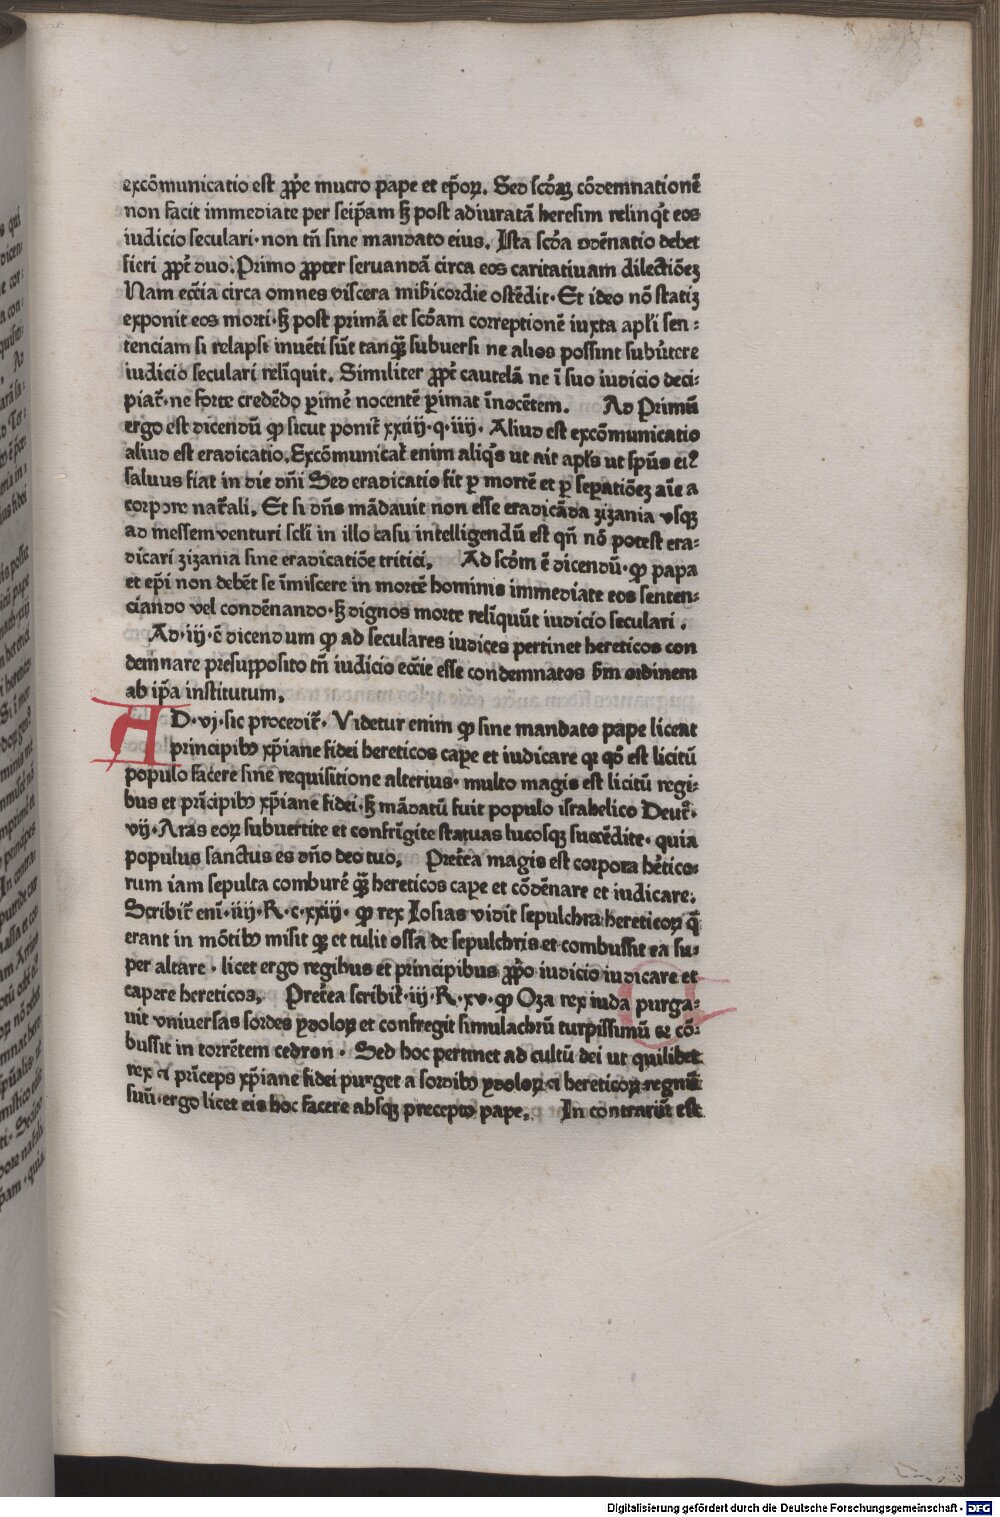 excōmunicatio est ꝓp̄e mucro pape et ep̄oꝝ. Sed scd̄aꝫ cōdemnationē
non facit immediate per seip̄am sꝫ post adiuratā heresim relinqͥt eos
iudicio seculari·non tn̄ sine mandato eius. Ista scd̄a ꝯdēnatio debet
fieri ꝓpt̄ duo. Primo ꝓpter seruandā circa eos caritatiuam dilectiōeꝫ
Nam ecc̄ia circa omnes viscera mīsicordie ostēdit·Et ideo nō statiꝫ
exponit eos morti·sꝫ post primā et scd̄am correptionē iuxta apl̄i sen⸗
tenciam si relapsi inuēti sūt tanqꝫ̄ subuersi ne alios possint subūtere
iudicio seculari relīquit. Similiter ꝓpt̄ cautelā ne ī suo iudicio deci⸗
piat᷑·ne forte credēdo ꝑimē nocentē ꝑimat īnocētem. Ad Primū
ergo est dicendū ꝙ sicut ponit᷑ xxiiij·q·iiij· Aliud est excōmunicatio
aliud est eradicatio. Excōmunicat᷑ enim aliqͥs ut ait apl̄s ut sp̄us eiꝰ
saluus fiat in die dn̄i Sed eradicatio fit ꝑ mortē et ꝑ sepatiōeꝫ aīe a
corpore nat᷑ali. Et si dn̄s mādauit non esse eradicāda zizania vsqꝫ
ad messem venturi scl̄i in illo casu intelligendū est qn̄ nō potest era⸗
dicari zizania sine eradicatiōe tritici. Ad scd̄m ē dicendū·ꝙ papa
et ep̄i non debēt se īmiscere in mortē hominis immediate eos senten⸗
ciando vel condēnando·sꝫ dignos morte relīquūt iudicio seculari.
Ad·iij·ē dicendum ꝙ ad seculares iudices pertinet hereticos con
demnare presupposito tn̄ iudicio ecc̄ie esse condemnatos sm̄ ordinem
ab ip̄a institutum.
AD·vj·sic procedit᷑· Videtur enim ꝙ sine mandato pape liceat
principibꝫ xp̄iane fidei hereticos cape et iudicare qꝛ qd̄ est licitū
populo facere sine requisitione alterius· multo magis est licitū regi⸗
bus et prīcipibꝫ xp̄iane fidei·sꝫ mādatū fuit populo israhelico Deut᷑·
vij·Aras eoꝝ subuertite et confrīgite statuas lucosqꝫ succēdite· quia
populus sanctus es dn̄o deo tuo. Pret̄ea magis est corpora hētico⸗
rum iam sepulta comburē qꝫ̄ hereticos cape et cōdēnare et iudicare.
Scribit᷑ enī·iiij·R·c·xxiij· ꝙ rex Iosias vidit sepulchra hereticoꝝ q̄
erant in mōtibꝫ misit qꝫ et tulit ossa de sepulchris et combussit ea su⸗
per altare · licet ergo regibus et principibus ꝓp̄o iudicio iudicare et
capere hereticos. Pret̄ea scribit᷑·iij·R·xv·ꝙ Oza rex iuda purga⸗
uit vniuersas sordes ydoloꝝ et confregit simulachrū turpissimū et cō⸗
bussit in torrētem cedron · Sed hoc pertinet ad cultū dei ut quilibet
rex et prīceps xp̄iane fidei purget a sordibꝫ ydoloꝝ et hereticoꝝ regnū
suū·ergo licet eis hoc facere absqꝫ precepto pape. In contrariū est
Digitalisierung gefördert durch die Deutsche Forschungsgemeinschaft · DFG